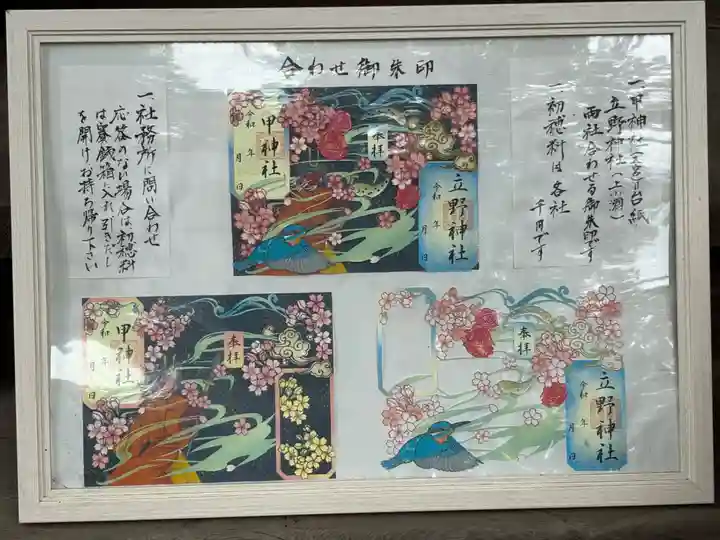 合わせ御朱印
一、甲神社(大宮)台紙
立野神社(上小瀬)
両社合わせる御朱印です
一、初穂料は各社
千円です
甲神社
令和 年 月 日
奉拝
立野神社
令和 年 月 日
一、社務所に問い合わせ
応答のない場合は、初穂料
は賽銭箱に入れ引きだし
を開けお持ち帰り下さい
甲神社
令和 年 月 日
奉拝
奉拝
立野神社
令和 年 月 日